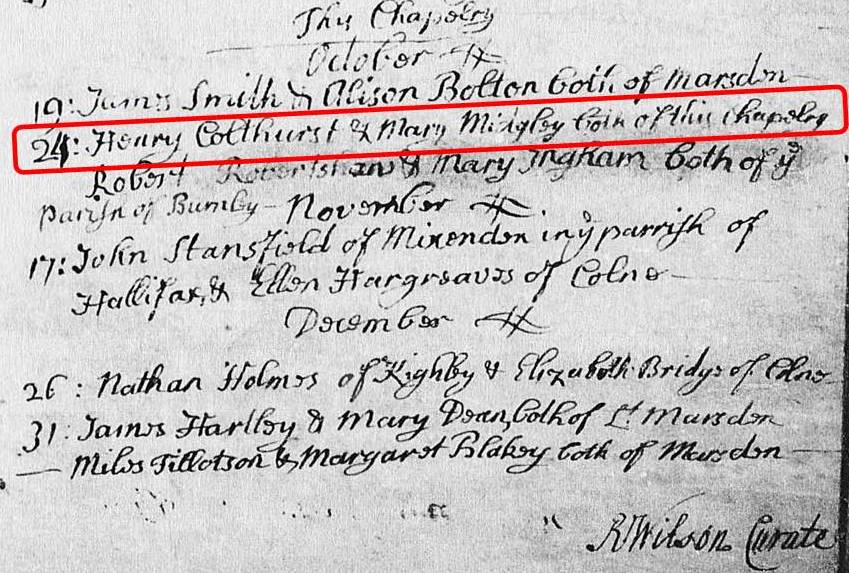 This Chapelry
October
19: James Smith & Alison Bolton both of Marsden
24: Henry Colthurst & Mary Midgley both of this Chapelry
Robert Robertshaw & Mary Ingham both of yͤ
Parish of Burnly - November
17: John Stansfield of Mixenden in yͤ parrish of
Hallifax, & Ellen Hargreaves of Colne
December
26: Nathan Holmes of Kighby & Elizabeth Bridge of Colne
31: James Hartley & Mary Dean both of Lᵗ Marsden
— Miles Tillotson & Margaret Blakey both of Marsden
R Wilson Curate